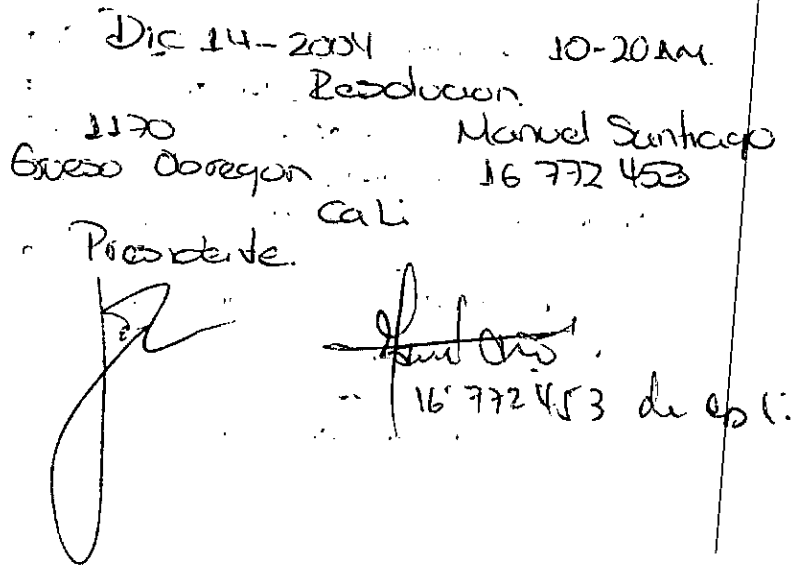 Dic 14-2004 10-20 AM.
Resolucion.
1170 Manuel Santiago
Grueso Obregon 16 772 453
Cali
Presidente.
16 772 453 de Cali.